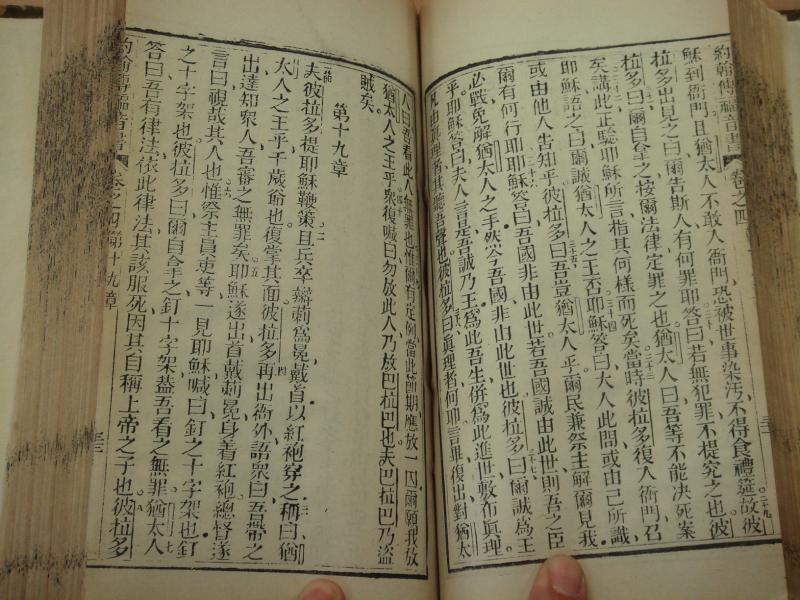 約翰傳福音書 卷之四
穌到衙門且猶太人不敢入衙門恐被世事染污不得食禮筵故彼
拉多出見之曰爾告斯人有何罪耶答曰若無犯罪不提究之也彼
拉多曰爾自拿之按爾法律定罪之也猶太人曰吾等不能决死案
矣講此正驗耶穌所言指其何樣而死矣當時彼拉多復入衙門召
耶穌語之曰爾誠猶太人之王否耶穌答曰夫人此問或由己所識
或由他人告知乎彼拉多曰吾豈猶太人乎爾民兼祭主解爾見我
爾有何行耶耶穌答曰吾國非由此世若吾國誠由此世則吾之臣
必戰免解猶太人之手然今吾國非由此世也彼拉多曰爾誠爲王
乎耶穌答曰夫人言是吾誠乃王爲此吾生併爲此進世敷布眞理
凡由眞理者其聽吾聲也彼拉多曰眞理者何耶言罪復出對猶太
人曰吾看此人無罪也惟爾有定例當此節期應放一囚爾願我放
猶太人之王乎衆復喊曰勿放此人乃放巴拉巴也夫巴拉巴乃盜
賊矣
第十九章
夫彼拉多提耶穌鞭策且兵卒辮莿爲冕戴首以紅袍穿之稱曰猶
太人之王乎千歲爺也復掌其面彼拉多再出衙外語衆曰吾帶之
出達知衆人吾審之無罪矣耶穌遂出首戴莿冕身着紅袍總督遂
言曰視哉其人也惟祭主員吏等一見耶穌喊曰釘之十字架也釘
之十字架也彼拉多曰爾自拿之釘十字架蓋吾看之無罪猶太人
答曰吾有律法依此律法其該服死因其自稱上帝之子也彼拉多
約翰傳福音書 卷之四 第十九章